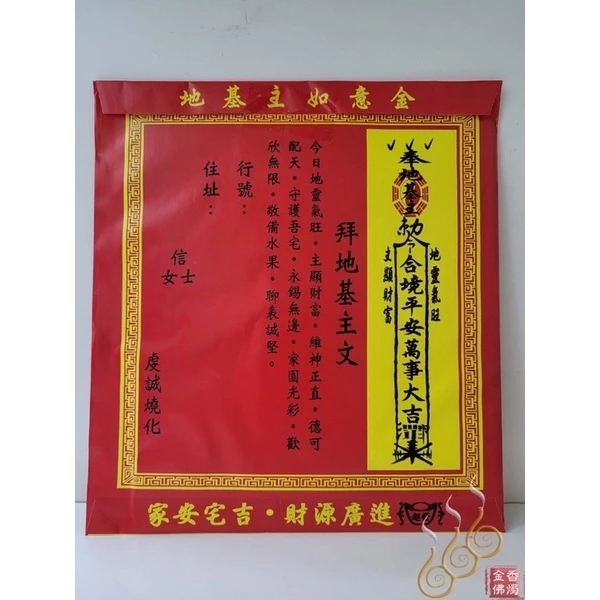 金意如主基地
奉地基主勅令合境平安萬事大吉
地靈氣旺
主顯財富
拜地基主文
今日地靈氣旺。主顯財富。維神正直。德可
配天。守護吾宅。永錫無邊。家園光彩。歡
欣無限。敬備水果。聊表誠堅。
行號：
住址：
信
士
女
虔誠燒化
進廣源財·吉宅安家
香燭
金佛